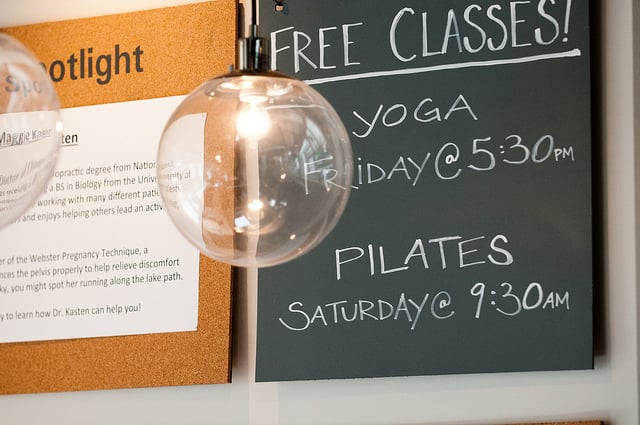 otlight
Maggie Kasten
opractic degree from Natio
a BS in Biology from the Univ ersity of
working with many different patie
s and enjoys helping others lead an activ
er of the Webster Pregnancy Technique, a
nces the pelvis properly to help relieve discomfort
ky, you might spot her running along the lake path.
y to learn how Dr. Kasten can help you!
FREE CLASSES!
YOGA
FRIDAY @ 5:30PM
PILATES
SATURDAY @ 9:30AM